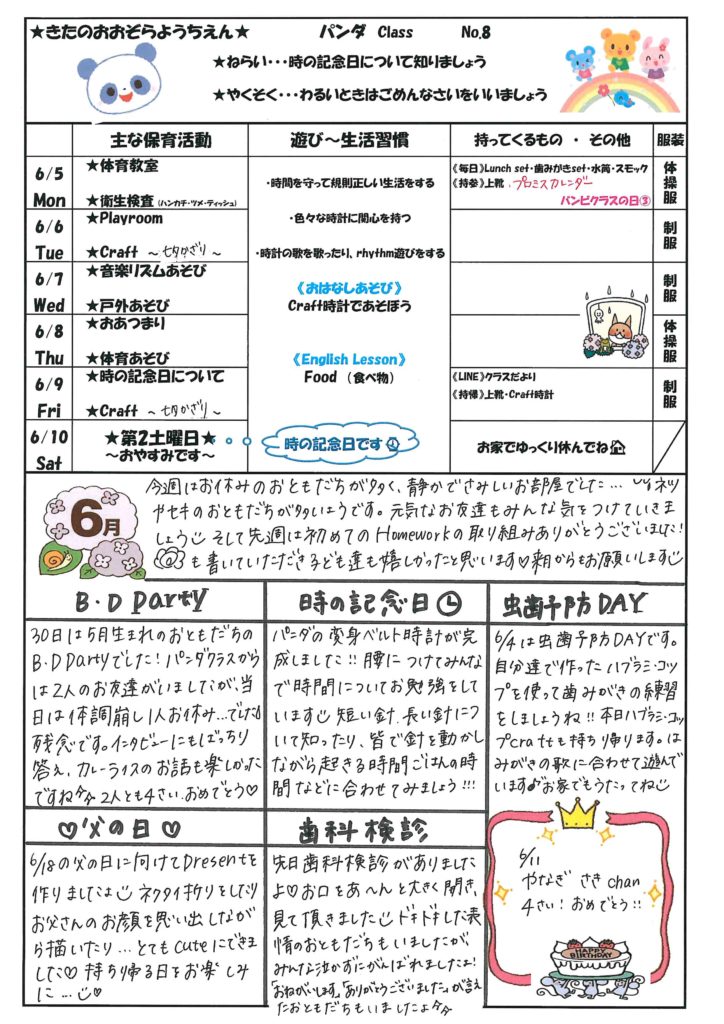 ★きたのおおぞらようちえん★ パンダ Class No.8
★ねらい・・・時の記念日について知りましょう
★やくそく・・・わるいときはごめんなさいをいいましょう
主な保育活動 遊び～生活習慣 持ってくるもの ・ その他 服装
6/5 Mon
★体育教室
★衛生検査 (ハンカチ・ツメ・ティッシュ)
・時間を守って規則正しい生活をする
《毎日》Lunch set・歯みがきset・水筒・スモック
《持参》上靴、プロミスカレンダー
バンビクラスの日③
体操服
6/6 Tue
★Playroom
★Craft ～七夕かざり～
・色々な時計に関心を持つ
・時計の歌を歌ったり、rhythm遊びをする
制服
6/7 Wed
★音楽リズムあそび
★戸外あそび
《おはなしあそび》
Craft時計であそぼう
制服
6/8 Thu
★おあつまり
★体育あそび
《English Lesson》
Food （食べ物）
体操服
6/9 Fri
★時の記念日について
★Craft ～七夕かざり～
《LINE》クラスだより
《持帰》上靴・Craft時計
制服
6/10 Sat
★第2土曜日★
～おやすみです～
時の記念日です
お家でゆっくり休んでね
6月
今週はお休みのおともだちが多く、静かでさみしいお部屋でした…
ネツやセキのおともだちが多いようです。元気なお友達もみんな気をつけていきま
しょう そして先週は初めてのHomeworkの取り組みありがとうございました!
も書いていただき子ども達も嬉しかったと思います♡来月からもお願いします
B・D Party
30日は5月生まれのおともだちの
B・D Partyでした！パンダクラスから
は2人のお友達がいましたが、当
日は体調崩し1人お休み…でした
残念です。インタビューにもばっちり
答え、カレーライスのお話も楽しかった
ですね 2人とも4さい、おめでとう♡
時の記念日
パンダの変身ベルト時計が完
成しました!! 腰につけてみんな
で時間についてお勉強をして
います 短い針、長い針につ
いて知ったり、皆で針を動かし
ながら起きる時間ごはんの時
間などに合わせてみましょう!!!
虫歯予防DAY
6/4は虫歯予防DAYです。
自分達で作ったハブラシ・コッ
プを使って歯みがきの練習
をしましょうね!! 本日ハブラシ・コッ
プcraftも持ち帰ります。は
みがきの歌に合わせて遊んで
います♪お家でもうたってね
♡父の日♡
6/18の父の日に向けてPresentを
作りましたよ ネクタイ折りをしたり
お父さんのお顔を思い出しなが
ら描いたり…とてもcuteにできま
した♡ 持ち帰る日をお楽しみ
に…♡
歯科検診
先日歯科検診がありました
よ♡お口をあ～んと大きく開き、
見て頂きました ドキドキした表
情のおともだちもいましたが
みんな泣かずにがんばれましたよ!
「おねがいします」「ありがとうございました」が言え
たおともだちもいましたよ
6/11
やなぎ さき chan
4さい! おめでとう!!
HAPPY
BIRTHDAY